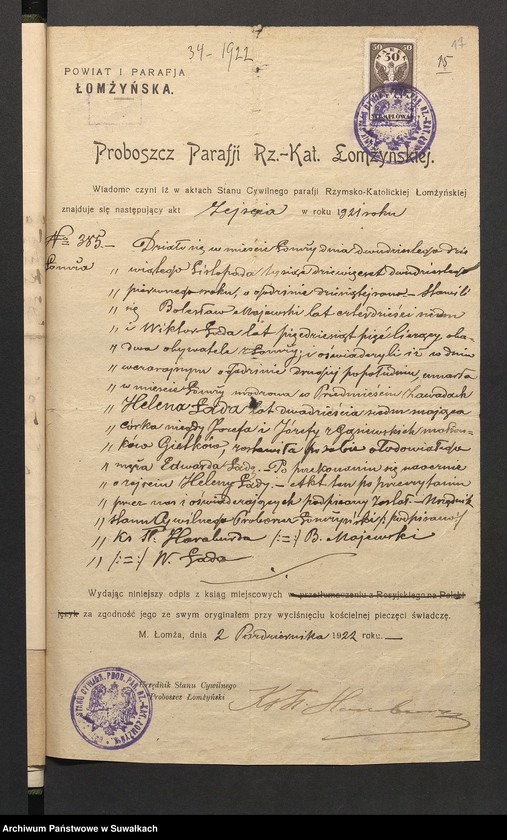 34-1922
17
15
50 50
50
POWIAT I PARAFJA
ŁOMŻYŃSKA.
Proboszcz Parafji Rz.-Kat. Łomżyńskiej.
Wiadomo czyni iż w aktach Stanu Cywilnego parafji Rzymsko-Katolickiej Łomżyńskiej
znajduje się następujący akt Zejścia w roku 1921 roku
№ 385.— Działo się w mieście Łomży dnia dwudziestego dzie
Łomża „ wiątego Listopada tysiąc dziewięćset dwudziestego
„ pierwszego roku, o godzinie dziesiątej rano.— Stawili
„ się Bolesław Majewski lat czterdzieści siedm
„ i Wiktor Łada lat pięćdziesiąt pięć liczący, oba-
„ dwa obywatele z Łomży, i oświadczyli iż w dniu
„ wczorajszym o godzinie drugiej popołudniu umarła
„ w mieście Łomży na Przedmieściu
„ Helena Łada lat dwadzieścia siedm mająca
„ córka niegdy Józefa i Józefy z Gąsiewskich małżon-
„ ków Giełków, zostawiła po sobie owdowiałego
„ męża Edwarda Ładę.— Po przekonaniu się naocznie
„ o zejściu Heleny Łady.— Akt ten po przeczytaniu
„ przez nas i oświadczających podpisany został.— Urzędnik
„ Stanu Cywilnego Proboszcz Łomżyński /: podpisano:/
„ Ks. H. /:=:/ B. Majewski
„ /:=:/ W. Łada
Wydając niniejszy odpis z ksiąg miejscowych w przetłumaczeniu z Rosyjskiego na Polski
język za zgodność jego ze swym oryginałem przy wyciśnięciu kościelnej pieczęci świadczę.
M. Łomża, dnia 2 Października 1922 roku.—
Urzędnik Stanu Cywilnego
Proboszcz Łomżyński
Archiwum Państwowe w Suwałkach